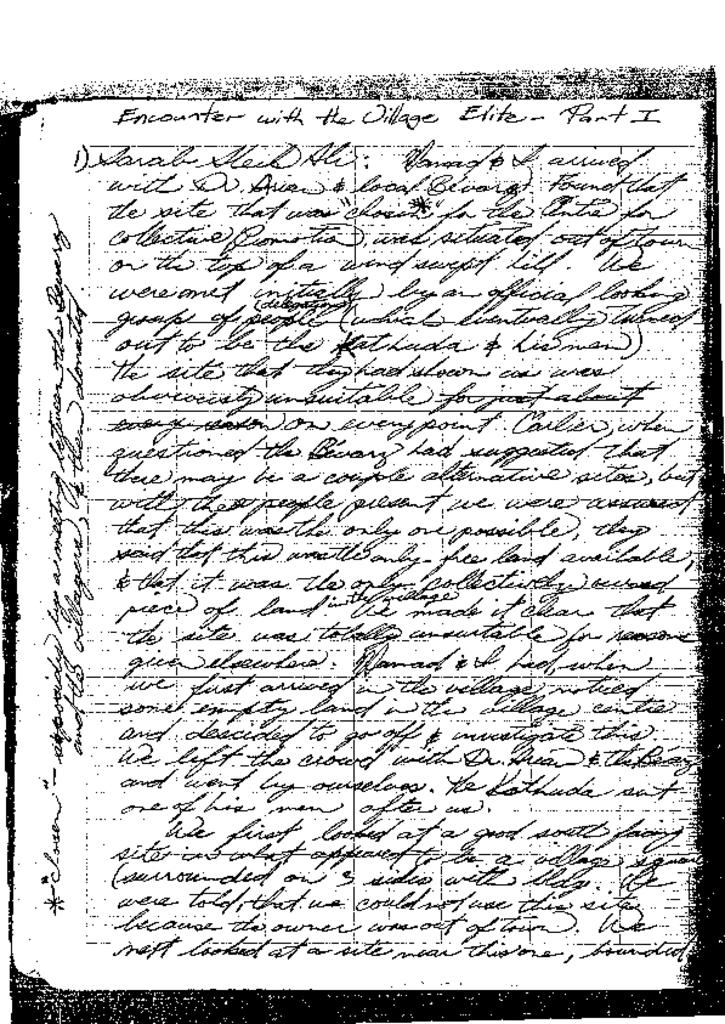 Encounter with the Village Elite - Part I
1) Sarab Sheik Ali: Hamad & I arrived
with Dr. Arian & local Bevarz. Found that
the site that was "chosen*" for the Centre for
collective Promotion was situated out of town
on the top of a wind swept hill. We
were met initially by an official looking
groups of people (which eventually turned
out to be the Kathuda & his men)
the site that they had shown us was
obviously unsuitable for just about
every reason on every point. Earlier, when
questioned the Bevarz had suggested that
there may be a couple alternative sites, but
with these people present we were assured
that this was the only one possible, they
said that this was the only free land available,
& that it was the only collectively owned
piece of land in the village We made it clear that
the site was totally unsuitable for reasons
given elsewhere. Hamad & I had, when
we first arrived in the village, noticed
some empty land in the village centre
and descided to go off & investigate this.
We left the crowd with Dr. Arian & the Bevarz
and went by ourselves. The Kathuda sent
one of his men after us.
We first looked at a good south facing
site in what appeared to be a village square
(surrounded on 3 sides with bldgs. We
were told, that we could not use this site
because the owner was out of town. We
next looked at a site near this one, bounded
* "Chosen" - supposidly by a meeting between the Bevarz
and the villagers, & then donated